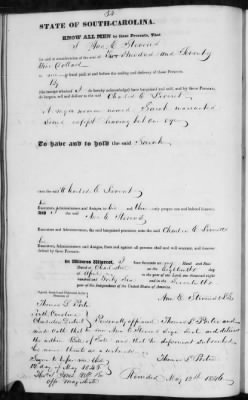 STATE OF SOUTH-CAROLINA.
KNOW ALL MEN by these Presents, That
I Ann E. Stroud
for and in consideration of the sum of Two Hundred and Seventy
Five Dollars
to me in hand paid at and before the sealing and delivery of these Presents,
by
(the receipt whereof I do hereby acknowledge) have bargained and sold, and by these Presents,
do bargain, sell and deliver to the said Charles E.
A negro woman named Sarah warranted
Sound except having but one eye
To have and to hold the said Sarah
unto the said Charles E.
Executors, Administrators and Assigns, to and their only proper use and behoof, forever,
And I the said Ann E. Stroud
Executors and Administrators, the said bargained premises, unto the said Charles E.
Executors, Administrators and Assigns, from and against all persons shall and will warrant, and forever
defend by these Presents.
In Witness Whereof, I have hereunto set my Hand and Seal
Dated at Charleston on the Eighteenth day
of April in the year of our Lord one thousand eight
hundred and Forty Six and in the Seventieth
year of the Independence of the United States of America.
Ann E. Stroud
Thomas S.
South Carolina
Charleston District Personally appeared Thomas S.
made Oath that he saw Ann E. Stroud Sign Seal and deliver
the within Bill of Sale and that he deponent subscribed
his name thereto as a witness
Sworn to before me this Thomas S.
12 day of May 1846
Magistrate Recorded May 12th 1846